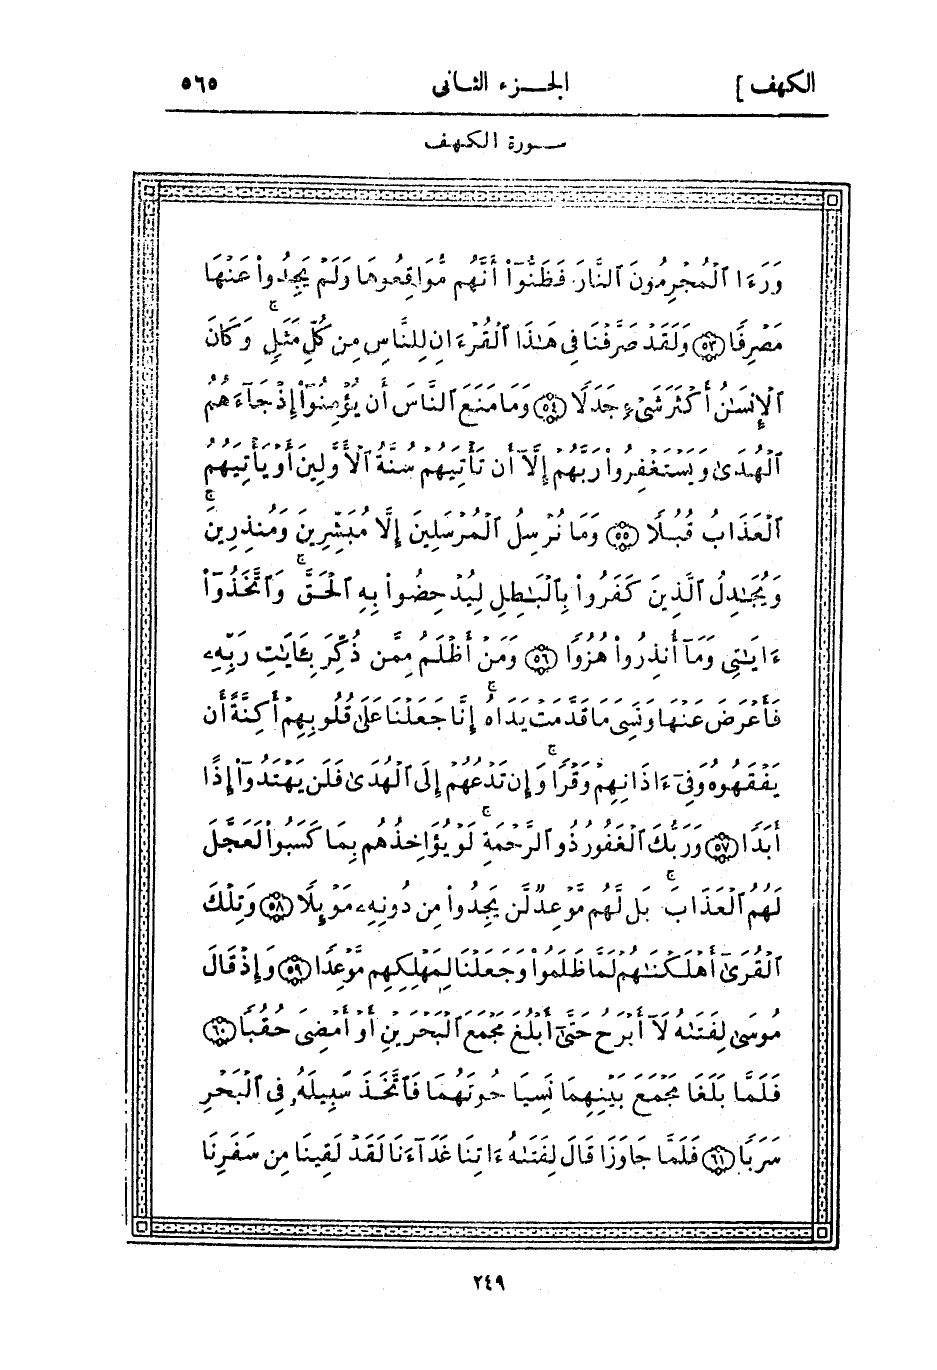 الكهف ] الجـــزء الثـانى ٥٦٥
ســورة الكـهـف
وَرَءَا ٱلْمُجْرِمُونَ ٱلنَّارَ فَظَنُّوٓا۟ أَنَّهُم مُّوَاقِعُوهَا وَلَمْ يَجِدُوا۟ عَنْهَا
مَصْرِفًا ﴿٥٣﴾ وَلَقَدْ صَرَّفْنَا فِى هَـٰذَا ٱلْقُرْءَانِ لِلنَّاسِ مِن كُلِّ مَثَلٍ ۚ وَكَانَ
ٱلْإِنسَـٰنُ أَكْثَرَ شَىْءٍ جَدَلًا ﴿٥٤﴾ وَمَا مَنَعَ ٱلنَّاسَ أَن يُؤْمِنُوٓا۟ إِذْ جَآءَهُمُ
ٱلْهُدَىٰ وَيَسْتَغْفِرُوا۟ رَبَّهُمْ إِلَّآ أَن تَأْتِيَهُمْ سُنَّةُ ٱلْأَوَّلِينَ أَوْ يَأْتِيَهُمُ
ٱلْعَذَابُ قُبُلًا ﴿٥٥﴾ وَمَا نُرْسِلُ ٱلْمُرْسَلِينَ إِلَّا مُبَشِّرِينَ وَمُنذِرِينَ ۚ
وَيُجَـٰدِلُ ٱلَّذِينَ كَفَرُوا۟ بِٱلْبَـٰطِلِ لِيُدْحِضُوا۟ بِهِ ٱلْحَقَّ ۚ وَٱتَّخَذُوٓا۟
ءَايَـٰتِى وَمَآ أُنذِرُوا۟ هُزُوًا ﴿٥٦﴾ وَمَنْ أَظْلَمُ مِمَّن ذُكِّرَ بِـَٔايَـٰتِ رَبِّهِۦ
فَأَعْرَضَ عَنْهَا وَنَسِىَ مَا قَدَّمَتْ يَدَاهُ ۚ إِنَّا جَعَلْنَا عَلَىٰ قُلُوبِهِمْ أَكِنَّةً أَن
يَفْقَهُوهُ وَفِىٓ ءَاذَانِهِمْ وَقْرًا ۚ وَإِن تَدْعُهُمْ إِلَى ٱلْهُدَىٰ فَلَن يَهْتَدُوٓا۟ إِذًا
أَبَدًا ﴿٥٧﴾ وَرَبُّكَ ٱلْغَفُورُ ذُو ٱلرَّحْمَةِ ۖ لَوْ يُؤَاخِذُهُم بِمَا كَسَبُوا۟ لَعَجَّلَ
لَهُمُ ٱلْعَذَابَ ۚ بَل لَّهُم مَّوْعِدٌ لَّن يَجِدُوا۟ مِن دُونِهِۦ مَوْئِلًا ﴿٥٨﴾ وَتِلْكَ
ٱلْقُرَىٰٓ أَهْلَكْنَـٰهُمْ لَمَّا ظَلَمُوا۟ وَجَعَلْنَا لِمَهْلِكِهِم مَّوْعِدًا ﴿٥٩﴾ وَإِذْ قَالَ
مُوسَىٰ لِفَتَىٰهُ لَآ أَبْرَحُ حَتَّىٰٓ أَبْلُغَ مَجْمَعَ ٱلْبَحْرَيْنِ أَوْ أَمْضِىَ حُقُبًا ﴿٦٠﴾
فَلَمَّا بَلَغَا مَجْمَعَ بَيْنِهِمَا نَسِيَا حُوتَهُمَا فَٱتَّخَذَ سَبِيلَهُۥ فِى ٱلْبَحْرِ
سَرَبًا ﴿٦١﴾ فَلَمَّا جَاوَزَا قَالَ لِفَتَىٰهُ ءَاتِنَا غَدَآءَنَا لَقَدْ لَقِينَا مِن سَفَرِنَا
٢٤٩